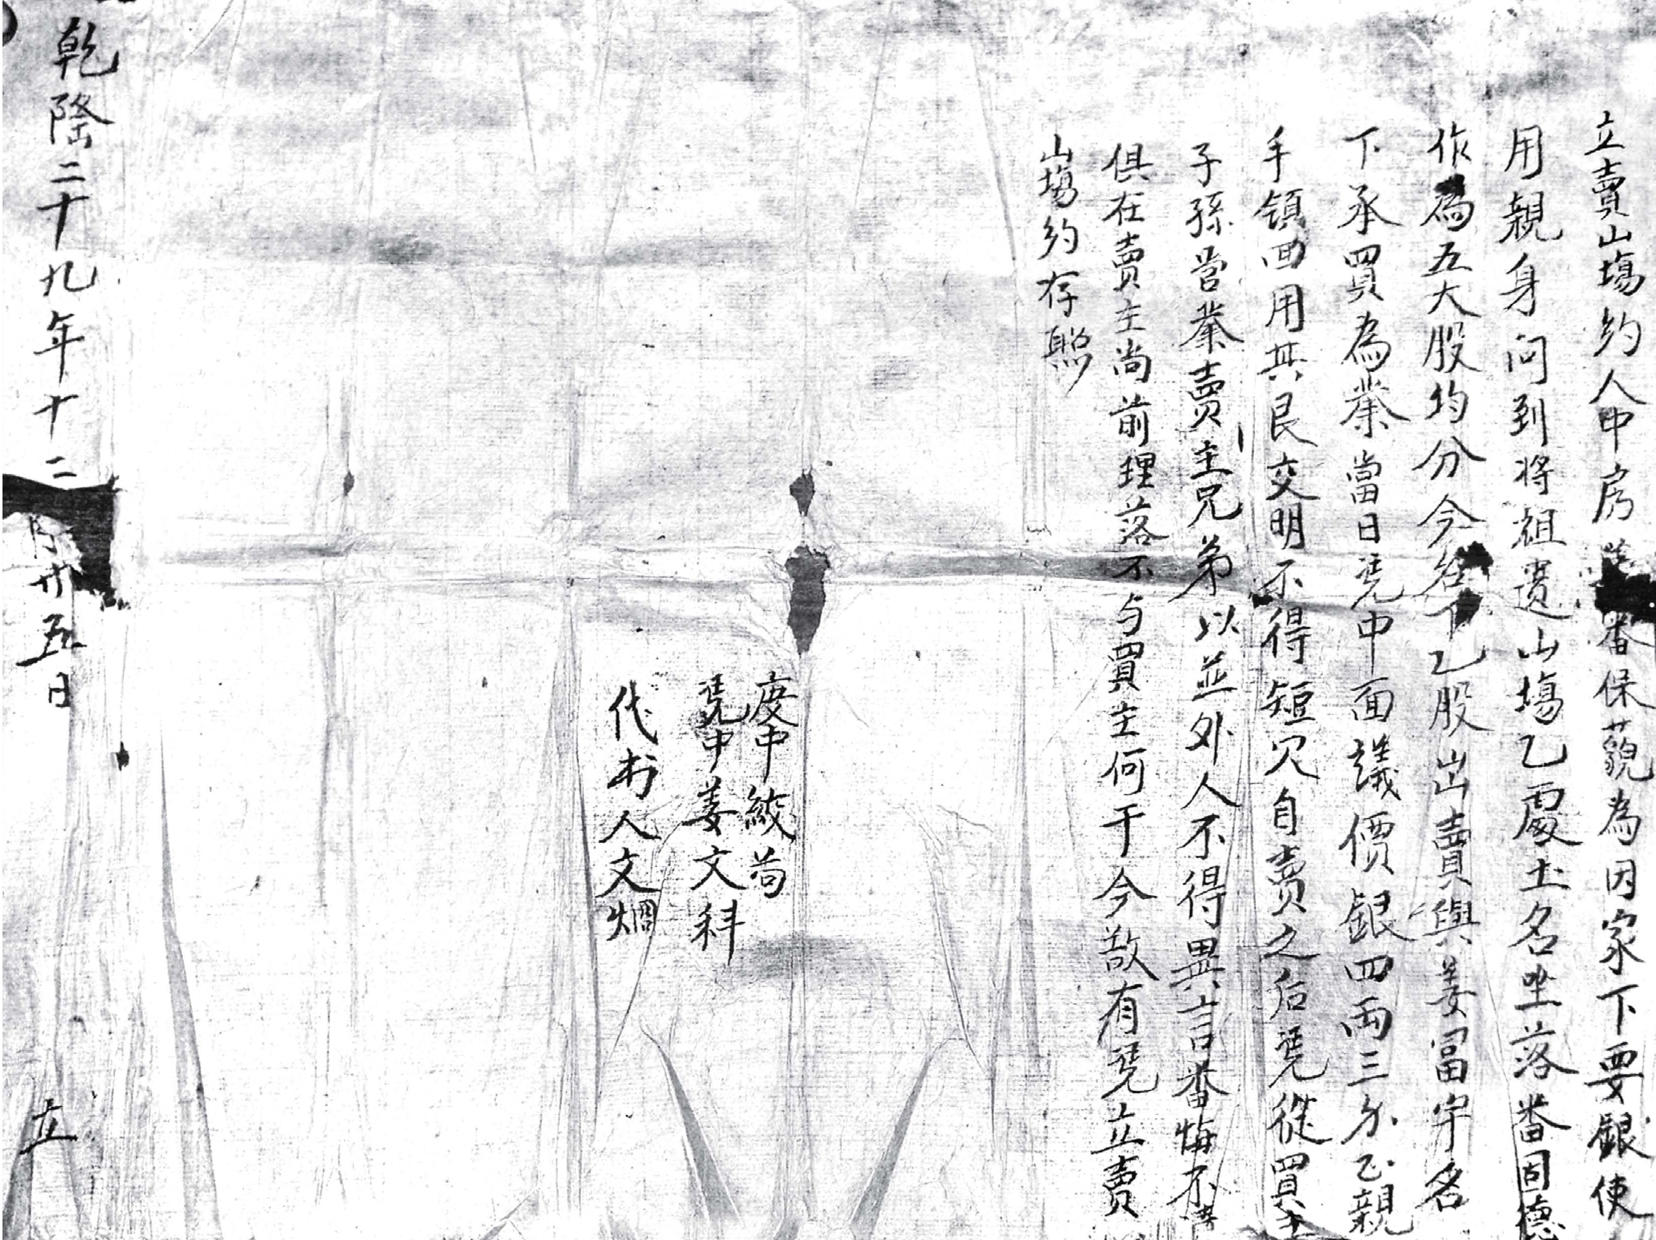 立賣山塲約人中房番保藐為因家下要銀使
用親身问到将祖遺山塲乙處土名坐落番固德
作為五大股均分今乙股出賣與姜冨宇名
下承買為業當日凴中面議價銀四两三分乙親
手領回用其艮交明不得短欠自賣之后凴從買主
子孫営業賣主兄弟以並外人不得異言番悔不清
俱在賣主尚前理落不与買主何干今敌有凴立賣
山塲约存照
度中絞苟
凴中姜文科
代书人文炯
乾隆二十九年十二月廿五日 立